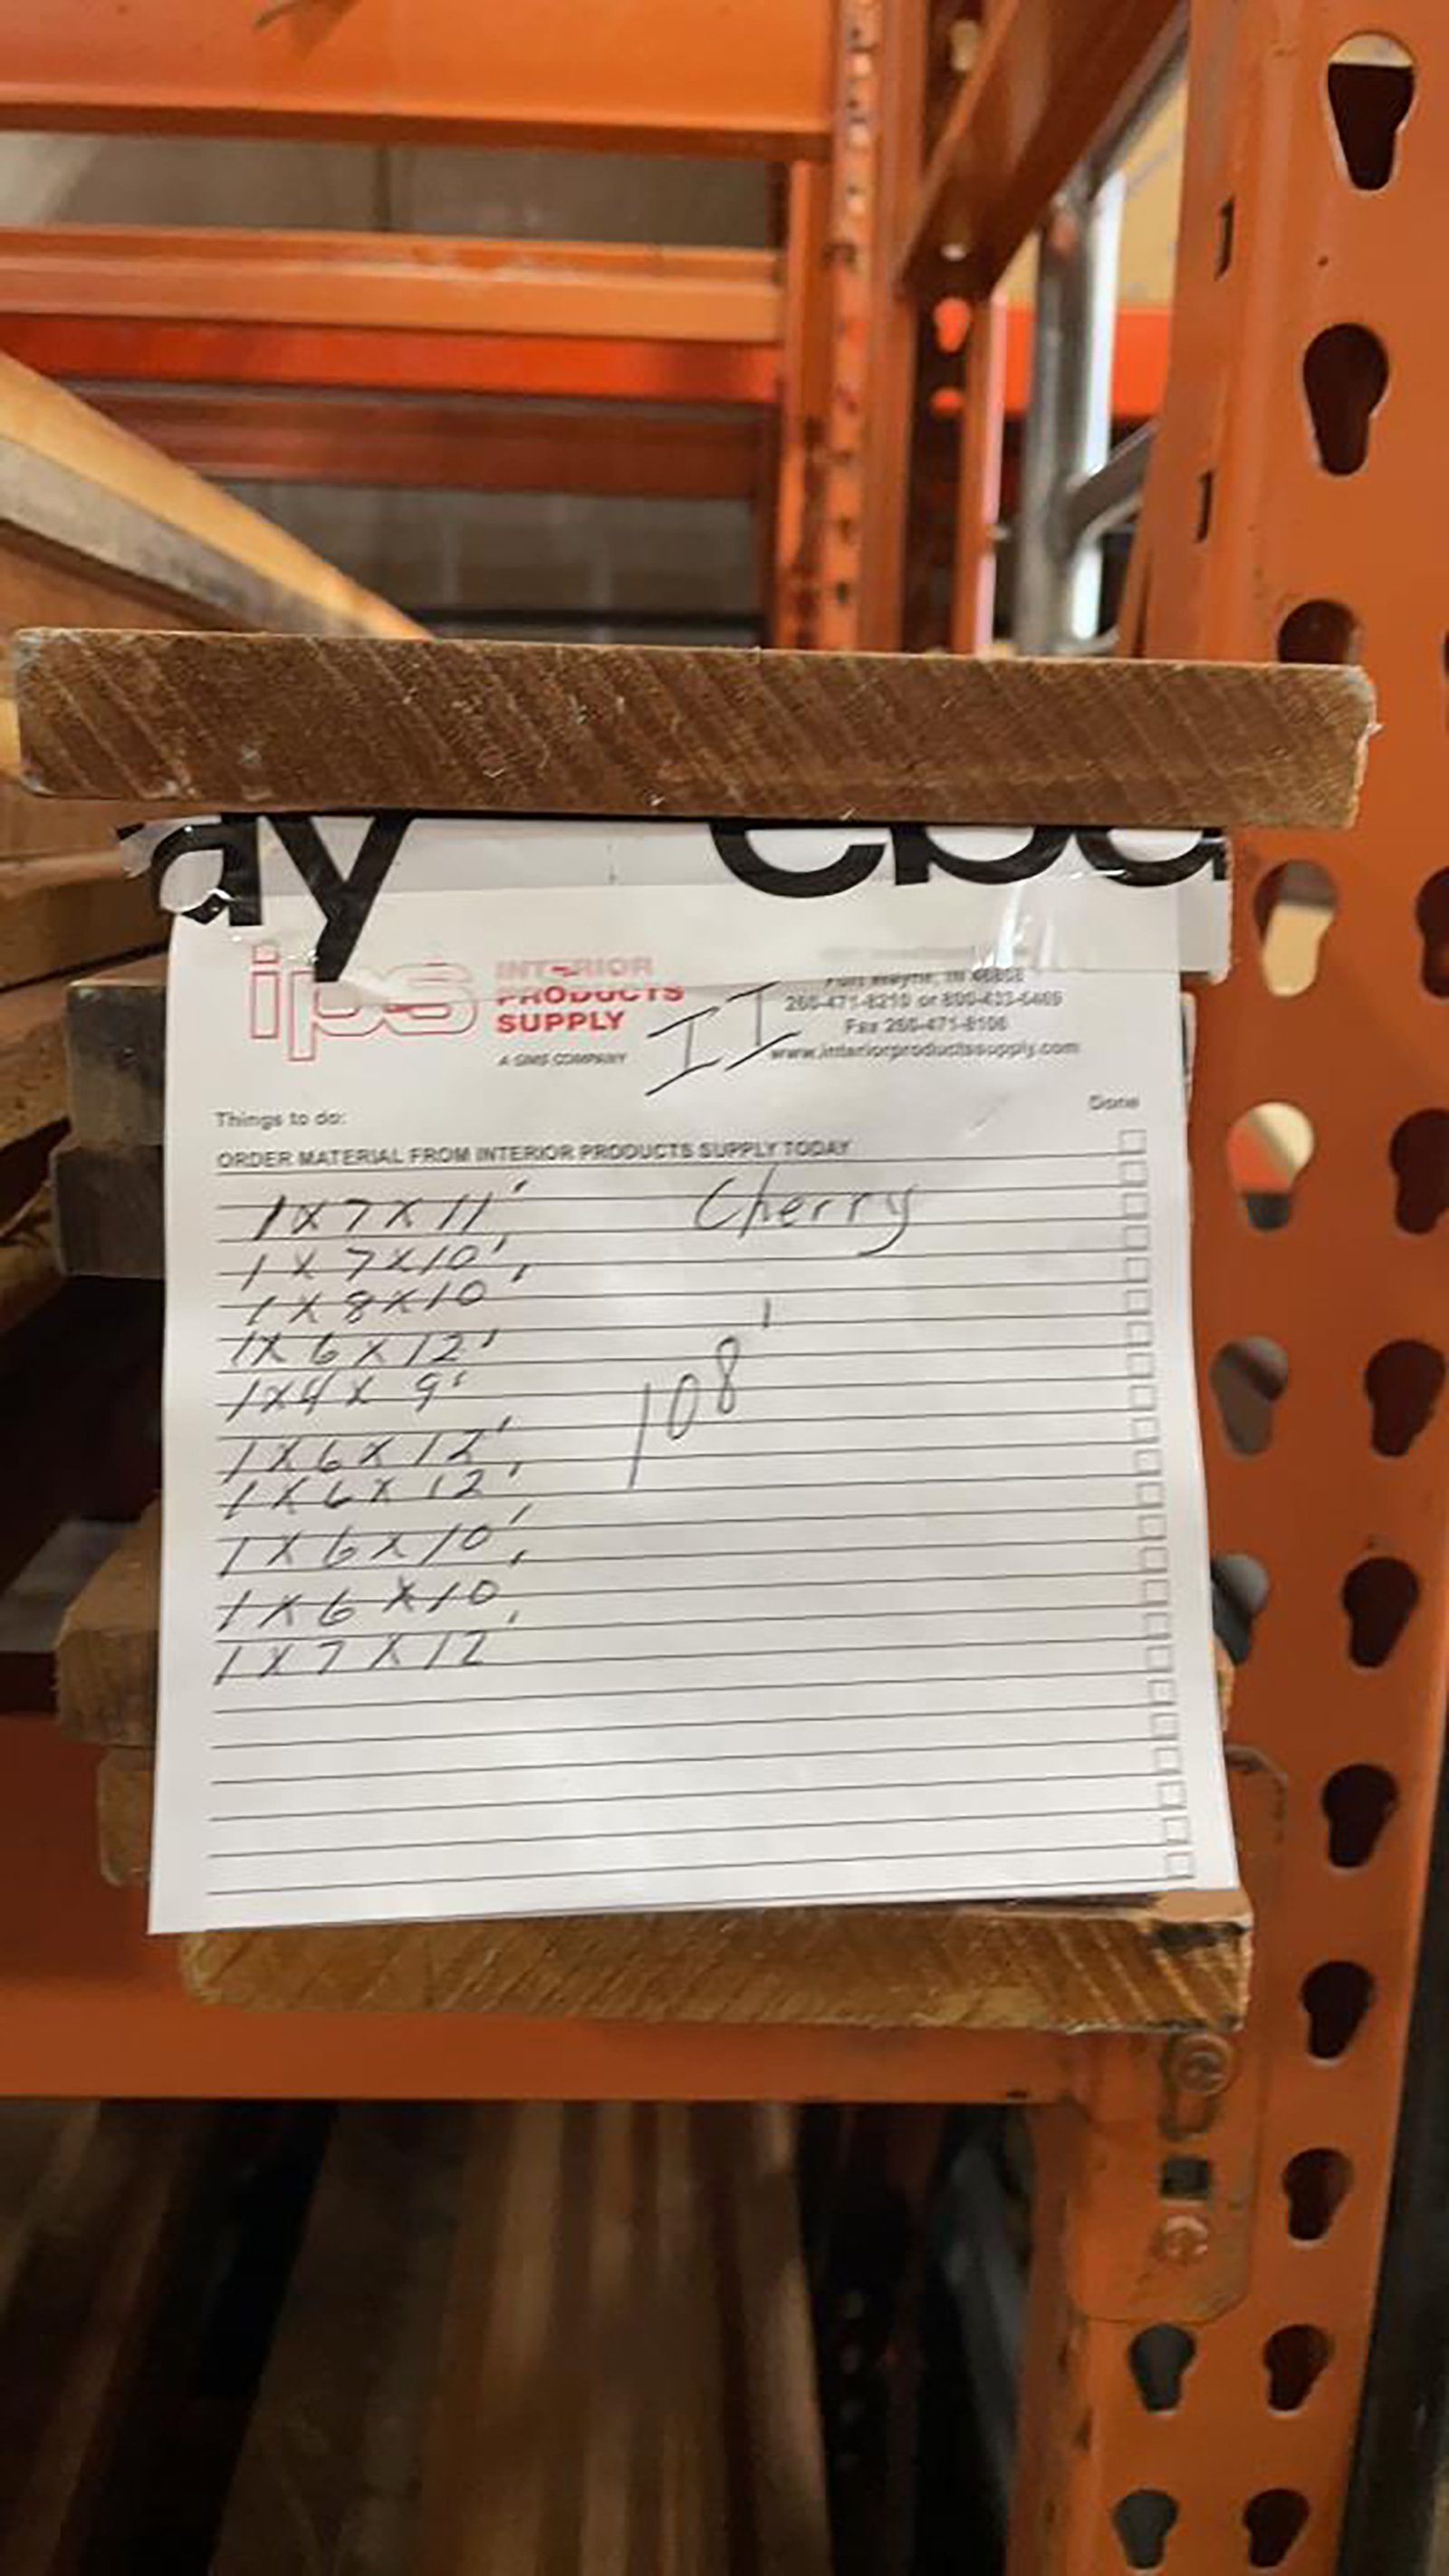 ay eba
ips INTERIOR
PRODUCTS
SUPPLY
A GMS COMPANY
II
Fort Wayne, IN
260-471-8210 or 800-433-6469
Fax 260-471-8106
www.interiorproductssupply.com
Things to do:
Done
ORDER MATERIAL FROM INTERIOR PRODUCTS SUPPLY TODAY
1x7x11'
Cherry
1x7x10'
1x8x10'
1x6x12'
1x4x 9'
108'
1x6x12'
1x6x12'
1x6x10'
1x6x10'
1x7x12'